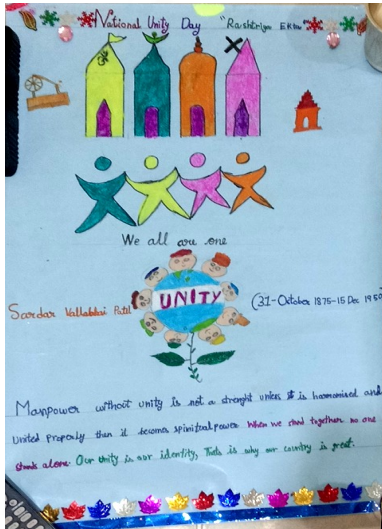 National Unity Day "Rashtriya Ekta
ॐ
We all are one
UNITY
Sardar Vallabhai Patel (31-October 1875-15 Dec 1950
Manpower without unity is not a strenght unless it is harmonised and
United properly then it becomes spiritual power. When we stand together no one
stands alone. Our Unity is our identity, Thats is why our country is great.